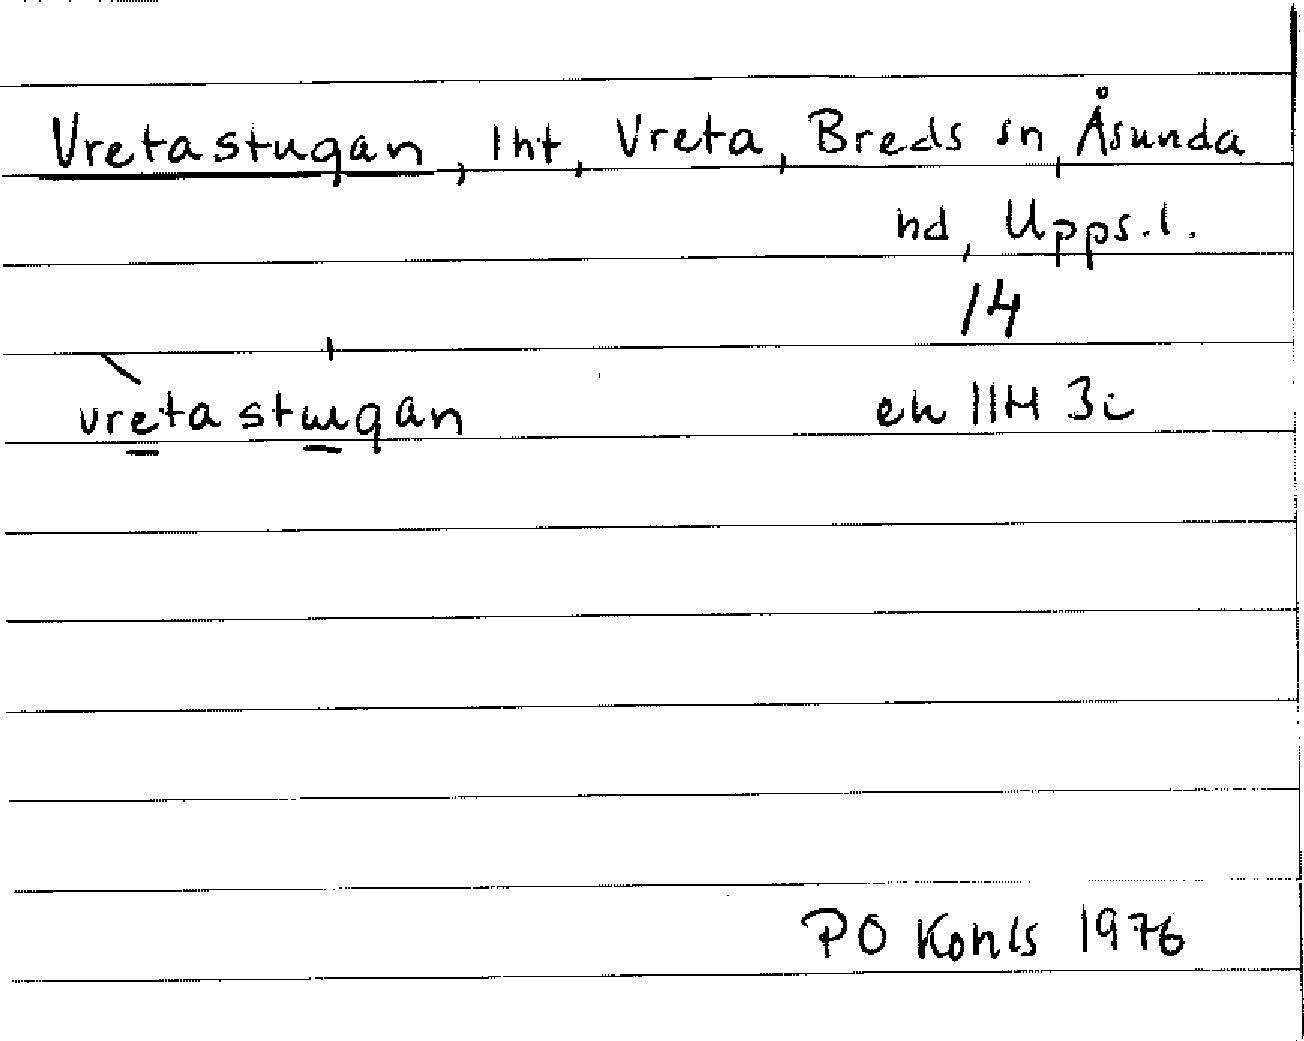 Vretastugan, lht, Vreta, Breds sn, Åsunda
hd, Upps.l.
14
vretastɯgan ek 11H 3i
PO Konls 1976